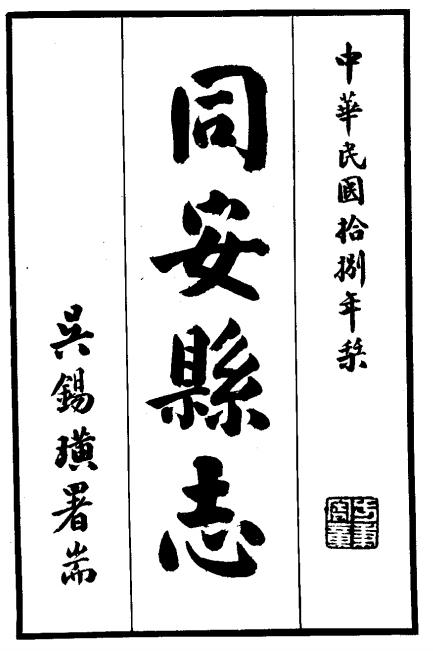 中華民國拾捌年棃
同安縣志
吳錫璜署耑